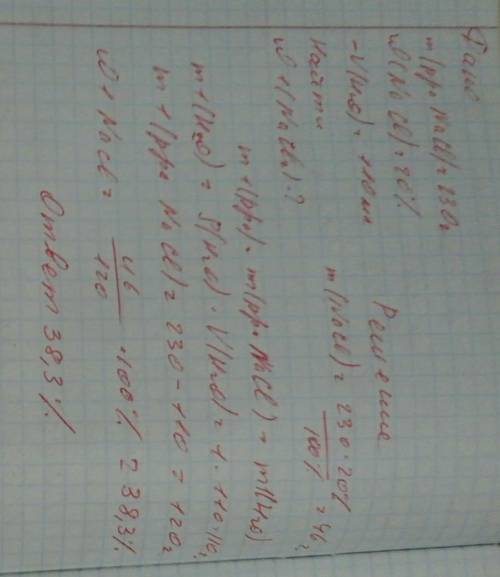 Дано
m(рра NaCl)=230г
ω(NaCl)=20%
-V(H₂O)=110мл
Найти
ω1(NaCl)-?
Решение
m(NaCl)= 230·20% / 100% = 46г
m1(рра)= m(рра NaCl) - m(H₂O)
m1(H₂O)= ρ(H₂O)·V(H₂O)= 1·110=110г
m1(рра NaCl)= 230-110=120г
ω1 NaCl= 46/120 ·100% = 38,3%
Ответ 38,3%